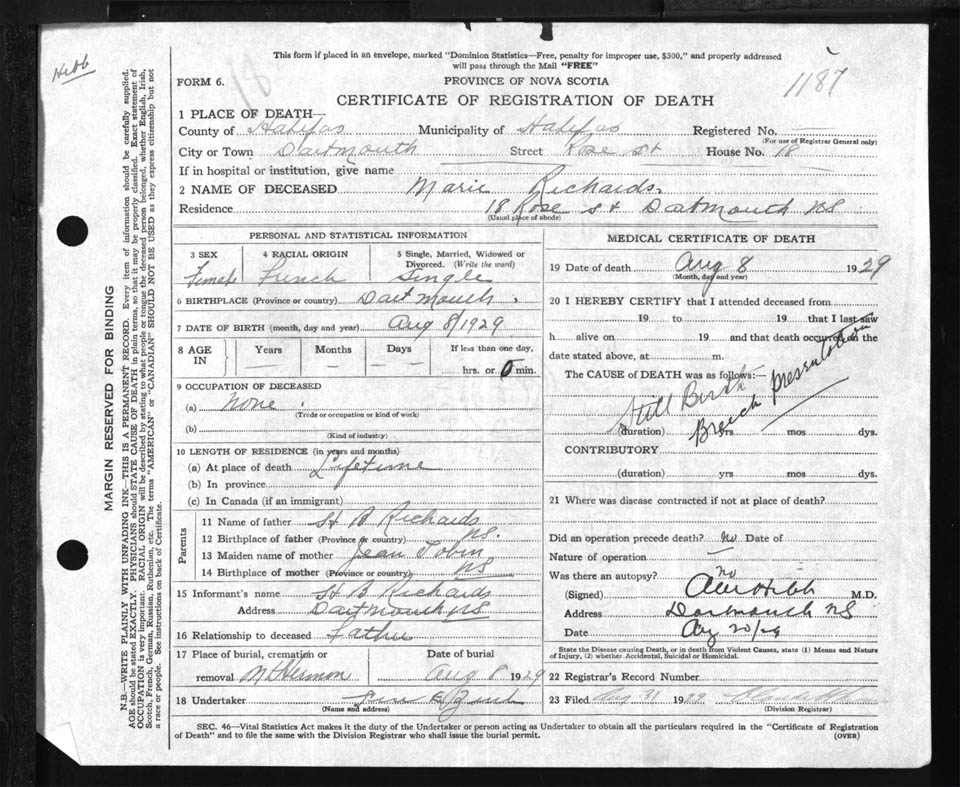 Hebb
This form if placed in an envelope, marked "Dominion Statistics—Free, penalty for improper use, $300," and properly addressed
will pass through the Mail "FREE"
1187
FORM 6.
PROVINCE OF NOVA SCOTIA
CERTIFICATE OF REGISTRATION OF DEATH
1 PLACE OF DEATH—
County of Halifax Municipality of Halifax Registered No.
(For use of Registrar General only)
City or Town Dartmouth Street Rose St House No. 18
If in hospital or institution, give name
2 NAME OF DECEASED Marie Richards.
Residence 18 Rose St Dartmouth NS
(Usual place of abode)
PERSONAL AND STATISTICAL INFORMATION
3 SEX 4 RACIAL ORIGIN 5 Single, Married, Widowed or
Divorced. (Write the word)
Female French Single
6 BIRTHPLACE (Province or country) Dartmouth
7 DATE OF BIRTH (month, day and year) Aug 8/1929
8 AGE IN Years Months Days If less than one day,
hrs. or 0 min.
9 OCCUPATION OF DECEASED
(a) None
(Trade or occupation or kind of work)
(b)
(Kind of industry)
10 LENGTH OF RESIDENCE (in years and months)
(a) At place of death Lifetime
(b) In province
(c) In Canada (if an immigrant)
Parents
11 Name of father H B Richards
12 Birthplace of father (Province or country) NS.
13 Maiden name of mother Jean Tobin
14 Birthplace of mother (Province or country) NS
15 Informant's name H B Richards
Address Dartmouth NS
16 Relationship to deceased father
17 Place of burial, cremation or Date of burial
removal Mt Hermon Aug 8 1929
18 Undertaker
(Name and address)
MEDICAL CERTIFICATE OF DEATH
19 Date of death Aug 8 1929
(Month, day and year)
20 I HEREBY CERTIFY that I attended deceased from
19 to 19 that I last saw
h alive on 19 and that death occurred on the
date stated above, at m.
The CAUSE OF DEATH was as follows:—
Still Birth
Breech presentation
(duration) yrs mos dys.
CONTRIBUTORY
(duration) yrs mos dys.
21 Where was disease contracted if not at place of death?
Did an operation precede death? no Date of
Nature of operation —
Was there an autopsy? no
(Signed) Hebb M.D.
Address Dartmouth NS
Date Aug 20/29
State the Disease causing Death, or in death from Violent Causes, state (1) Means and Nature
of Injury, (2) whether Accidental, Suicidal or Homicidal.
22 Registrar's Record Number
23 Filed Aug 31 1929
(Division Registrar)
SEC. 46—Vital Statistics Act makes it the duty of the Undertaker or person acting as Undertaker to obtain all the particulars required in the "Certificate of Registration
of Death" and to file the same with the Division Registrar who shall issue the burial permit.
(OVER)
MARGIN RESERVED FOR BINDING
N.B.—WRITE PLAINLY WITH UNFADING INK—THIS IS A PERMANENT RECORD. Every item of information should be carefully supplied.
AGE should be stated EXACTLY. PHYSICIANS should STATE CAUSE OF DEATH in plain terms, so that it may be properly classified. Exact statement of
OCCUPATION is very important. RACIAL ORIGIN will be described by stating to what people or tongue the deceased person belonged, whether English, Irish,
Scotch, French, German, Russian, Ruthenian, etc. The terms "AMERICAN" or "CANADIAN" SHOULD NOT BE USED as they express citizenship but not
a race or people. See instructions on back of Certificate.